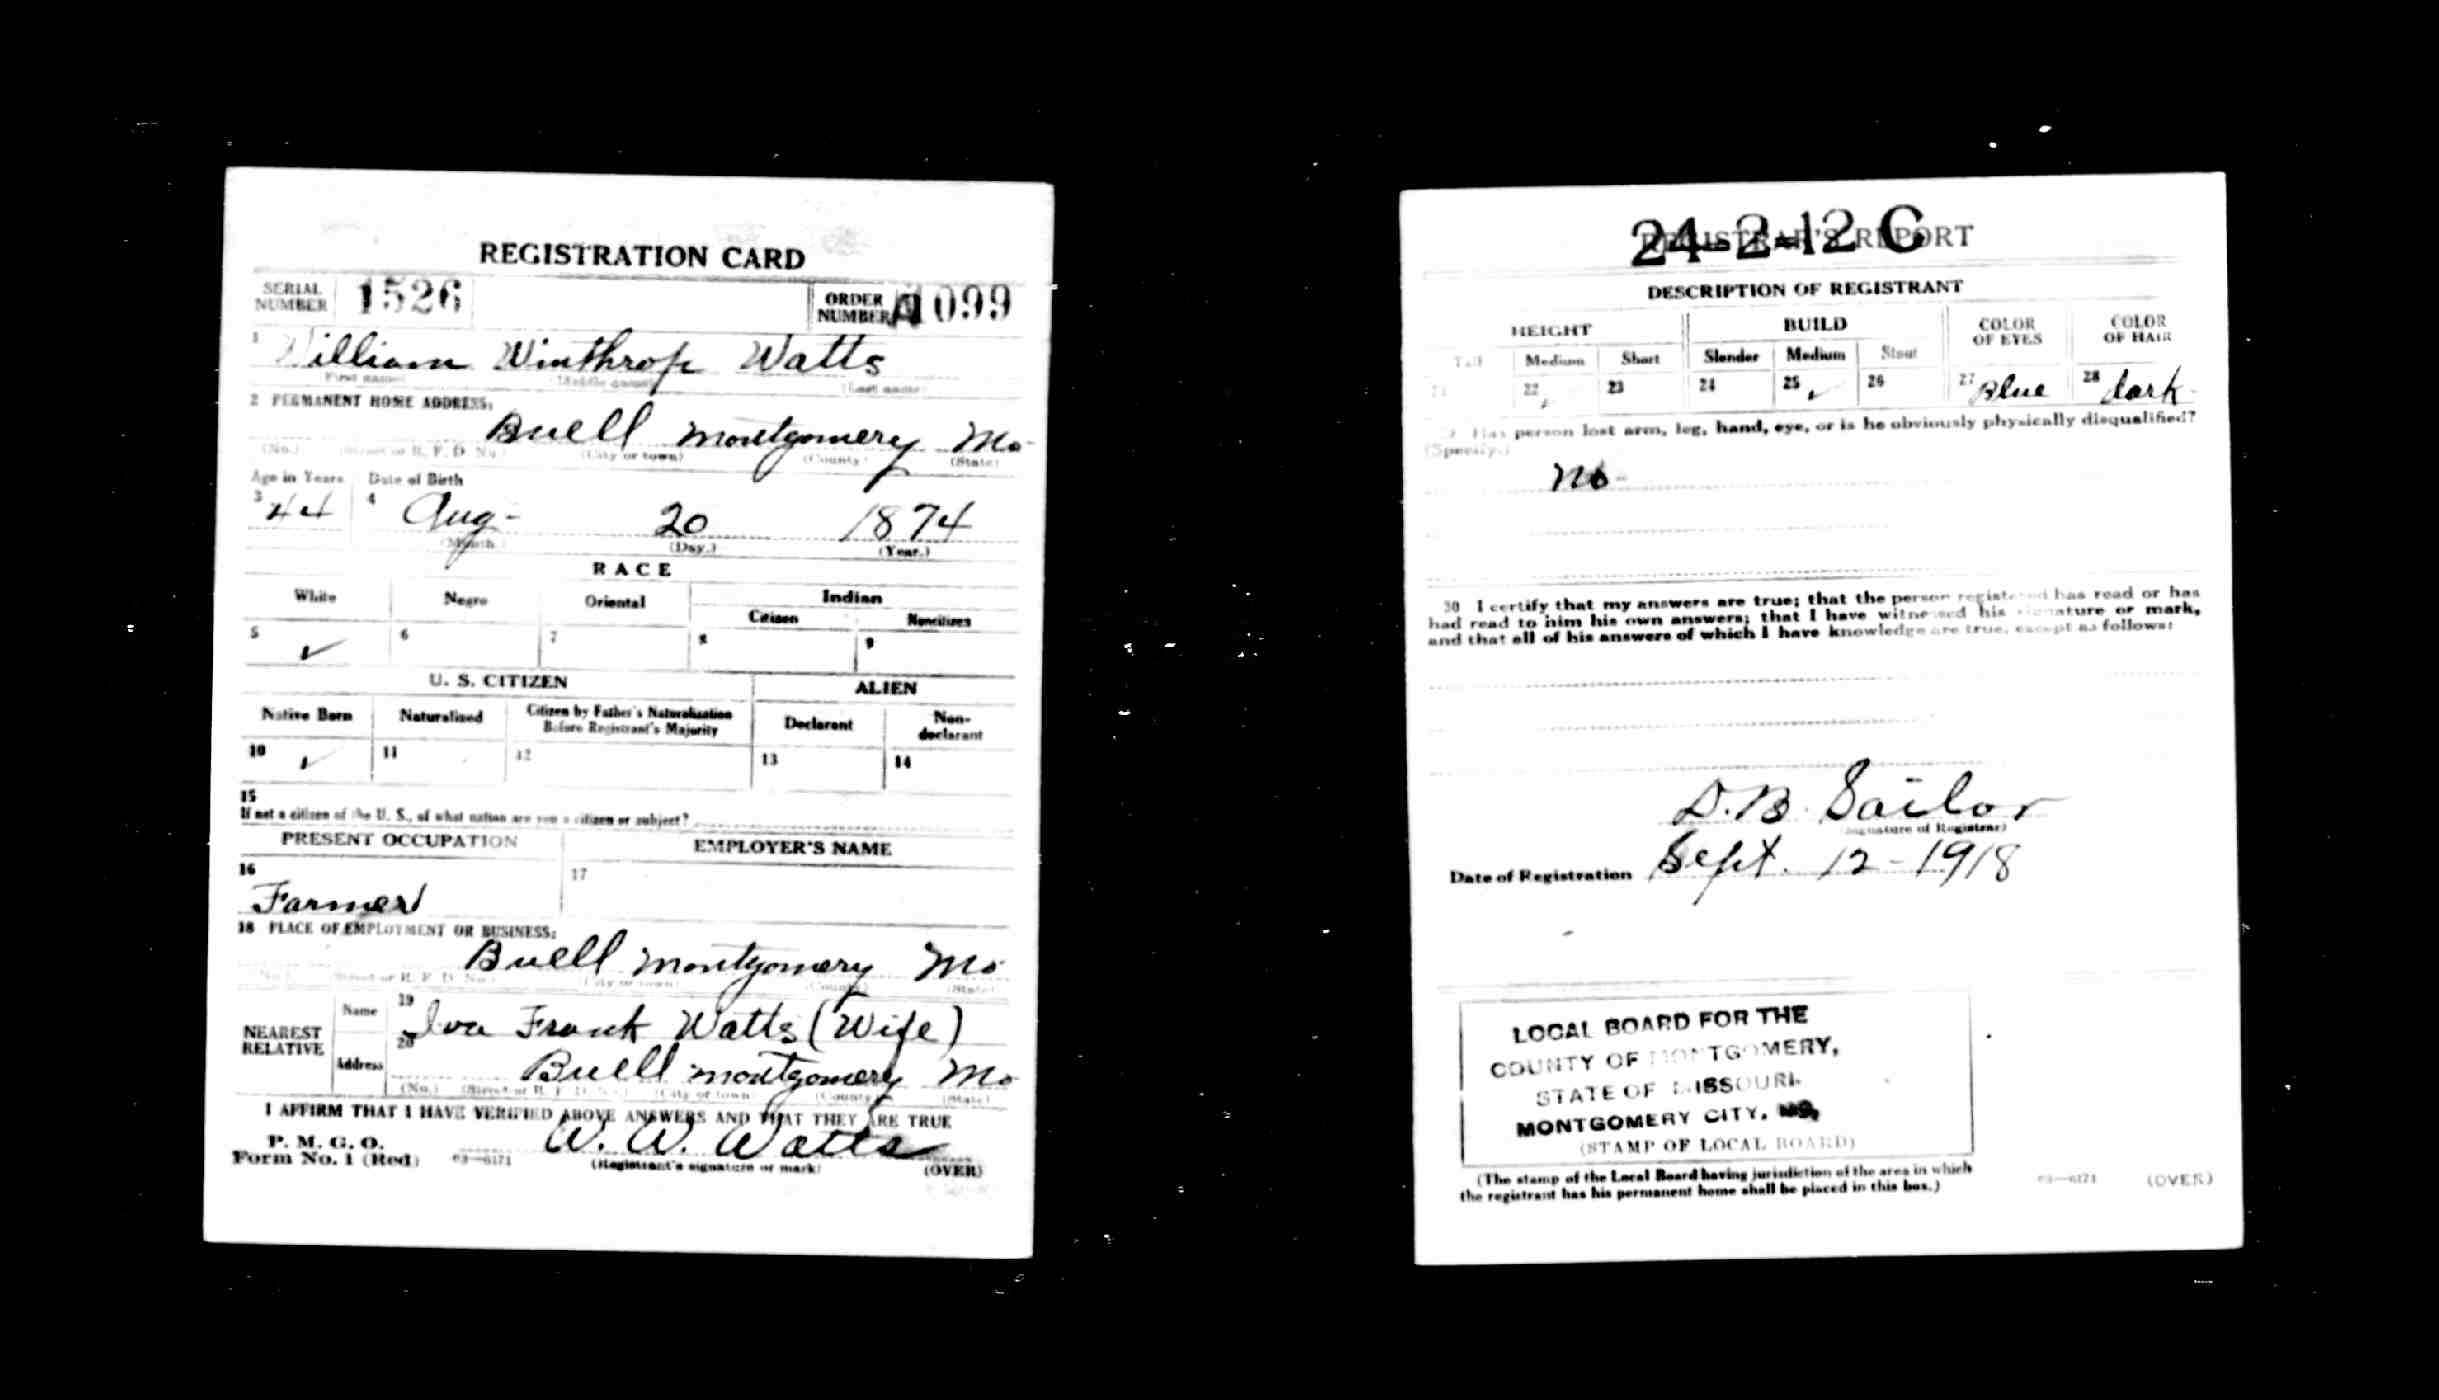 REGISTRATION CARD
SERIAL NUMBER 1526 ORDER NUMBER A1099
1 William Winthrop Watts
First name Middle name Last name
2 PERMANENT HOME ADDRESS:
Buell Montgomery Mo
(No.) (Street or R. F. D. No.) (City or town) (County) (State)
Age in Years Date of Birth
3 44 4 Aug- 20 1874
(Month.) (Day.) (Year.)
RACE
White Negro Oriental Indian
Citizen Noncitizen
5 ✓ 6 7 8 9
U. S. CITIZEN ALIEN
Native Born Naturalized Citizen by Father's Naturalization Before Registrant's Majority Declarant Non-declarant
10 ✓ 11 12 13 14
15
If not a citizen of the U. S., of what nation are you a citizen or subject?
PRESENT OCCUPATION EMPLOYER'S NAME
16 17
Farmer
18 PLACE OF EMPLOYMENT OR BUSINESS:
Buell Montgomery Mo
(No.) (Street or R. F. D. No.) (City or town) (County) (State)
NEAREST RELATIVE
Name 19 Iva Frank Watts (Wife)
Address 20 Buell Montgomery Mo
(No.) (Street or R. F. D. No.) (City or town) (County) (State)
I AFFIRM THAT I HAVE VERIFIED ABOVE ANSWERS AND THAT THEY ARE TRUE
P. M. G. O.
Form No. 1 (Red) 03—6171 W. W. Watts
(Registrant's signature or mark) (OVER)
REGISTRAR'S REPORT
24-2-12 C
DESCRIPTION OF REGISTRANT
HEIGHT BUILD COLOR OF EYES COLOR OF HAIR
Tall Medium Short Slender Medium Stout
21 22 ✓ 23 24 25 ✓ 26 27 Blue 28 dark
29 Has person lost arm, leg, hand, eye, or is he obviously physically disqualified?
(Specify.)
No-
30 I certify that my answers are true; that the person registered has read or has
had read to him his own answers; that I have witnessed his signature or mark,
and that all of his answers of which I have knowledge are true, except as follows:
D.B. Sailor
(Signature of Registrar)
Date of Registration Sept. 12-1918
LOCAL BOARD FOR THE
COUNTY OF MONTGOMERY,
STATE OF MISSOURI
MONTGOMERY CITY, MO,
(STAMP OF LOCAL BOARD)
(The stamp of the Local Board having jurisdiction of the area in which
the registrant has his permanent home shall be placed in this box.)
03—6171 (OVER)